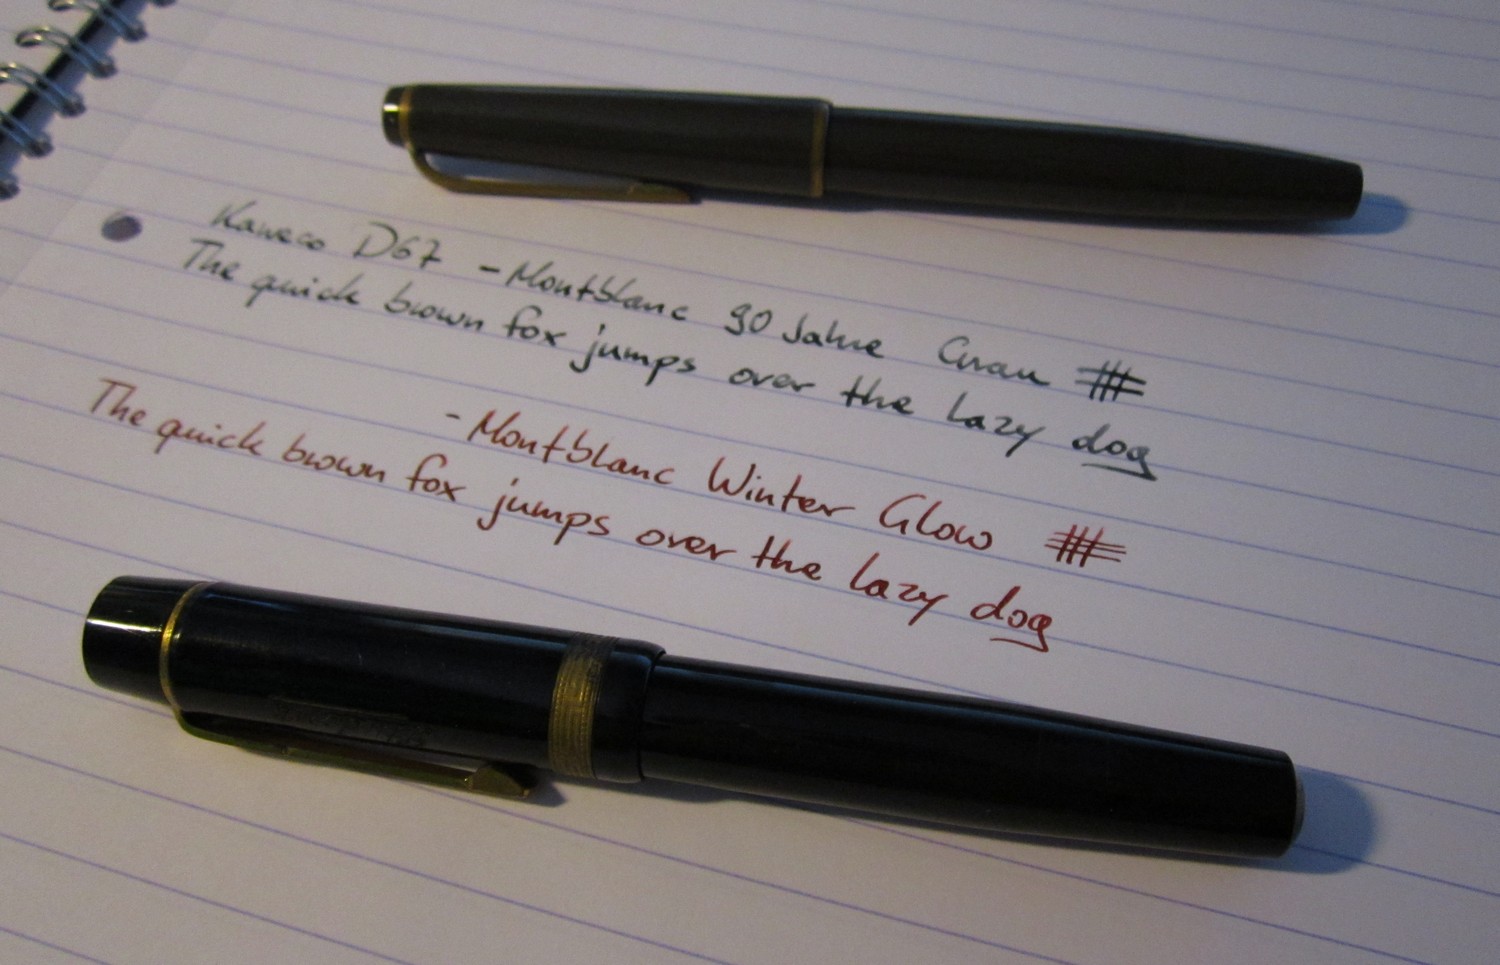 Kaweco D67 - Montblanc 90 Jahre Grau
The quick brown fox jumps over the lazy dog
- Montblanc Winter Glow
The quick brown fox jumps over the lazy dog